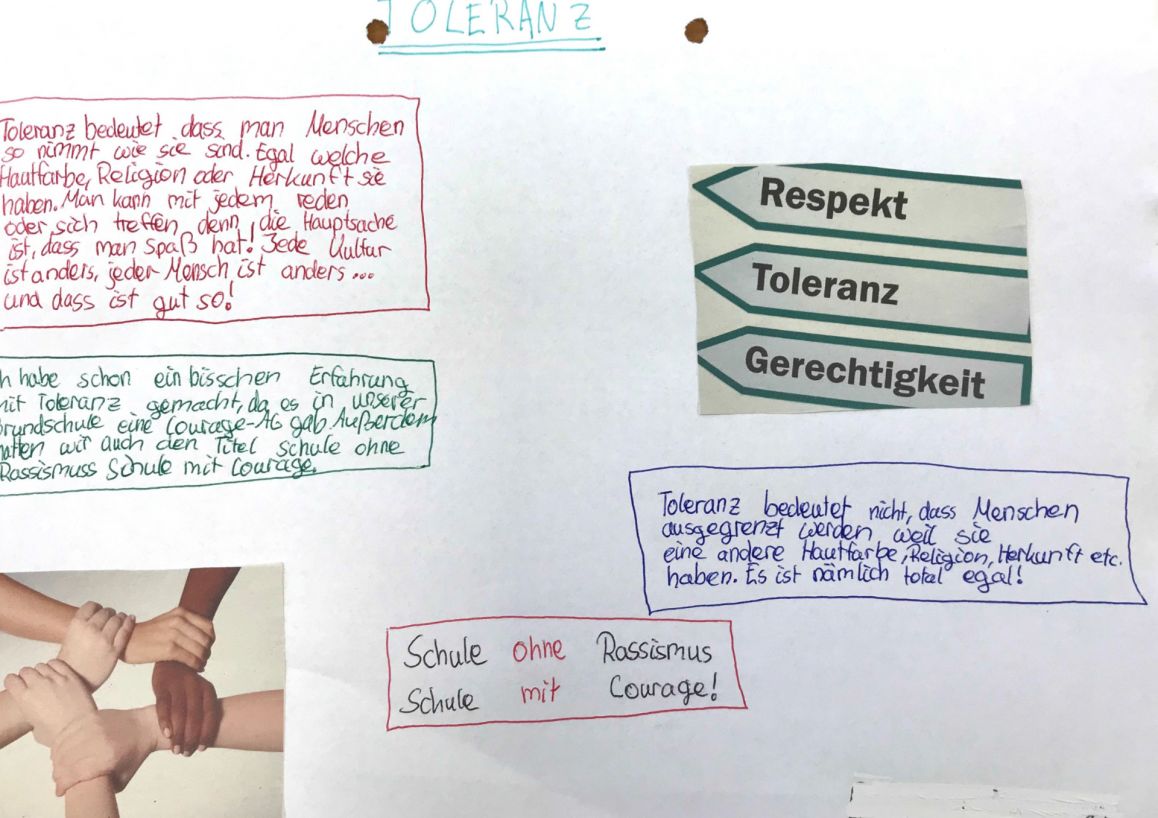 TOLERANZ
Toleranz bedeutet, dass man Menschen
so nimmt wie sie sind. Egal welche
Hautfarbe, Religion oder Herkunft sie
haben. Man kann mit jedem reden
oder sich treffen denn, die Hauptsache
ist, dass man Spaß hat! Jede Kultur
ist anders, jeder Mensch ist anders...
und dass ist gut so!
h habe schon ein bisschen Erfahrung
mit Toleranz gemacht, da es in unserer
Grundschule eine Courage-AG gab. Außerdem
hatten wir auch den Titel Schule ohne
Rassismuss Schule mit Courage.
Respekt
Toleranz
Gerechtigkeit
Toleranz bedeutet nicht, dass Menschen
ausgegrenzt werden weil sie
eine andere Hautfarbe, Religion, Herkunft etc.
haben. Es ist nämlich total egal!
Schule ohne Rassismus
Schule mit Courage!